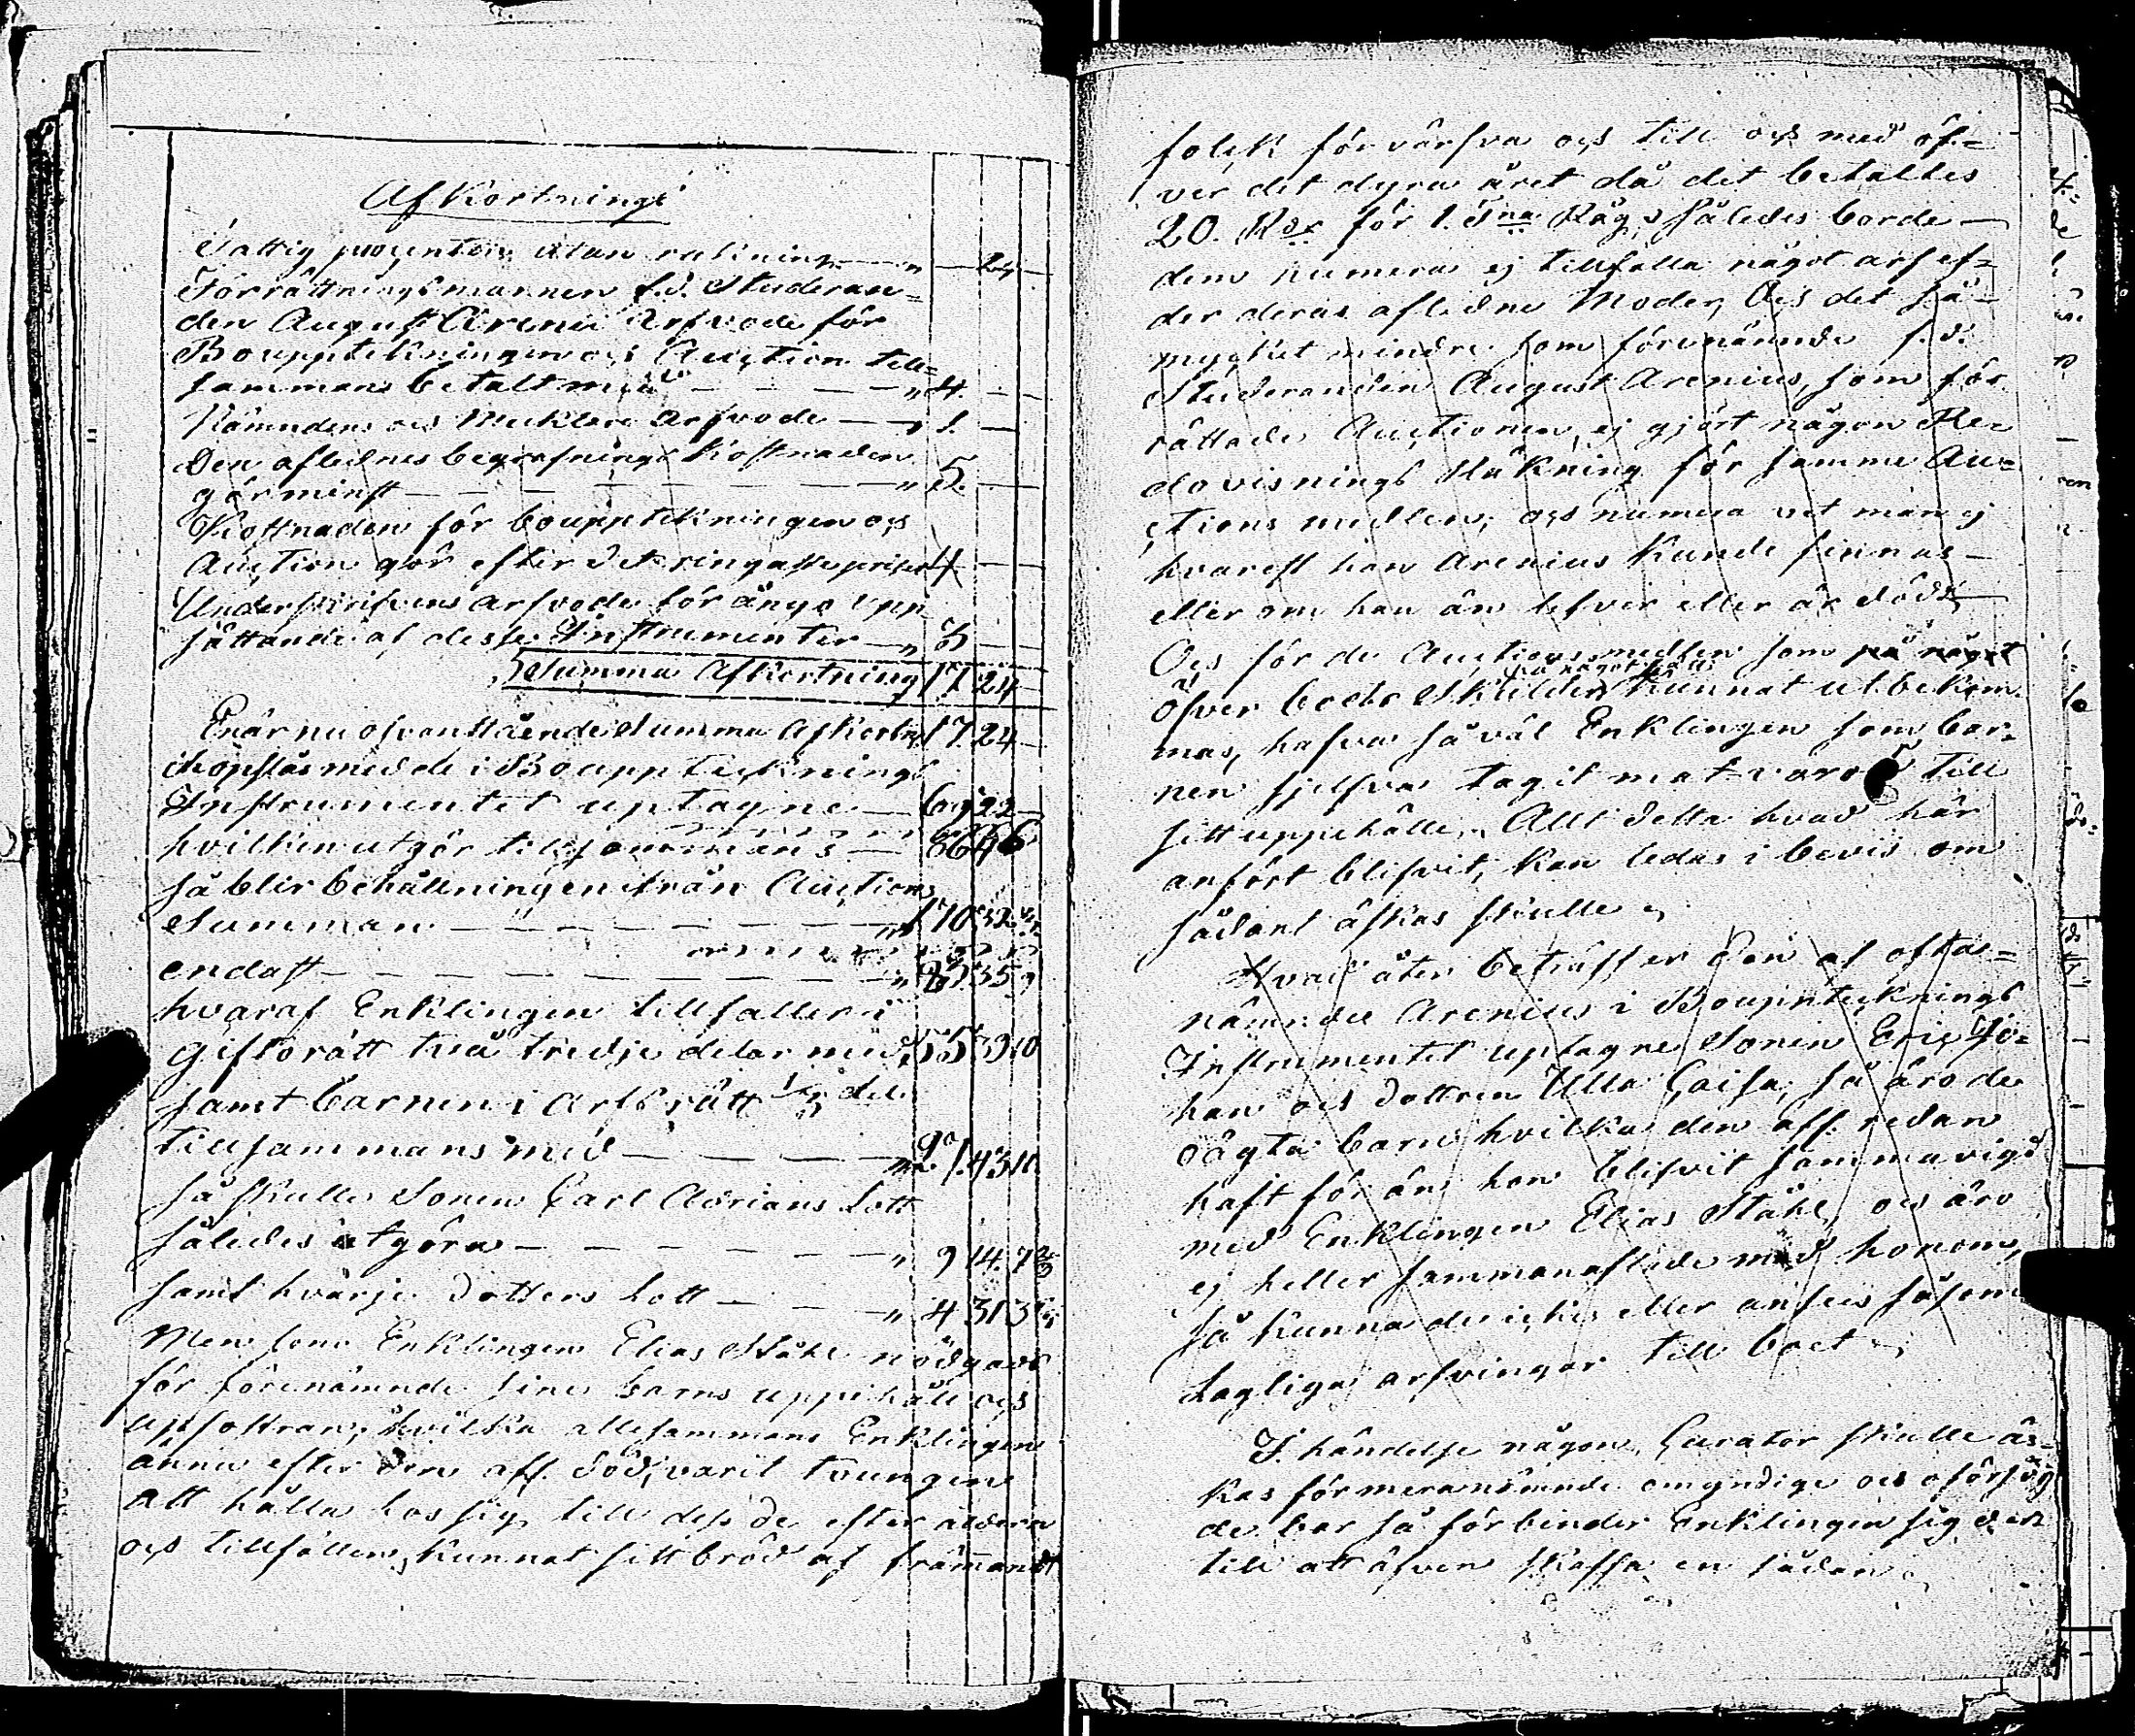 Afkortning:
Fattig procenten utan räkning — „ — 24 —
Förrättningsmannen f.d. Studeran=
den August Arenii Arfvode för
Bouppteckningen och Auction till=
sammans betalt med — — — „ 4. — —
Nämndens och Mecklare Arfvode — „ 1. —
Den aflednes begrafnings Kostnaden
gör minst — — — — — „ 5. —
Kostnaden för bouppteckningen och
Auction gör efter det ringaste priset 4 — —
Underskrifvens arfvode för ånyo upp
sättande af desse Instrumenter — „ 3 —
Summa Afkortning 17 24 —
Enär nu ofvanstående Summa Afkortn. 17. 24 —
ihopslås med de i BouppteckningS
Instrumentet uptagne — 69 22 —
hvilken utgör tillsammans — 86 46
så blir behållningen ifrån Auctions
Summan — — — — — „ 170 32
endast — — — — — „ 83 35 9
hvaraf Enklingen tillfaller i
giftorätt två tredje delar med „ 55 39 10
samt barnen i Arfsrätt 1/3 del
tillsammans med — — — „ 27. 43 11
Så skulle Sonen Carl Adrians Lott
således utgöra — — — — — „ 9 14. 7
samt hvarje Dotters Lott — — — „ 4 31 3
Men som Enklingen Elias Ståhl nödgats
för förenämnde sine barns uppehälle och
uppfostran, hvilka allesammans Enklingen
ännu efter dem afl. död, varit tvungen
att hålla hos sig, till dess de efter åldern
och tillfällen, kunnat sitt bröd af främandt
folck förvärfva och till och med öf=
ver det dyra året då det betaltes
20. Rdr för 1. Tna Råg; Således borde —
dem numera ej tillfalla något arf ef=
der deras aflidne Moder, Och det så —
mycket mindre som förenämnde f.d.
Studeranden August Arenius, som för
rättade Auctionen, ej gjort någon Re=
dovisnings Räkning för samme Au=
ctions medlen, och numera vet man ej
hvarest han Arenius kunde finnas —
eller om han än lefver eller är död,
Och för de Auctions medlen som på något
på något sätt
öfver boets skulder kunnat utbekom
mas, hafva så väl Enklingen som bar=
nen sjelfva tagit mat-varor till
sitt uppehälle. Allt detta hvad här
anfört blifvit, kan ledas i bevis om
sådant äskas skulle.
Hvad åter beträffer den af ofta=
nämnde Arenius i Bouppteckning
Instrumentet uptagne Sonen Eric Jo=
han och Dottren Ulla Caisa, så äro de
oägta barn hvilka den afl. redan
haft för än hon blifvit sammanvigd
med Enklingen Elias Ståhl, och äro
ej heller sammanaflade med honom,
så kunna de icke eller anses såsom
Lagliga arfvingar till boet.
I händelse någon Curator skulle äs=
kas för meranämnde omyndige och oförsörj
de bar så förbinder Enklingen sig der
till att äfven skaffa en sådan.